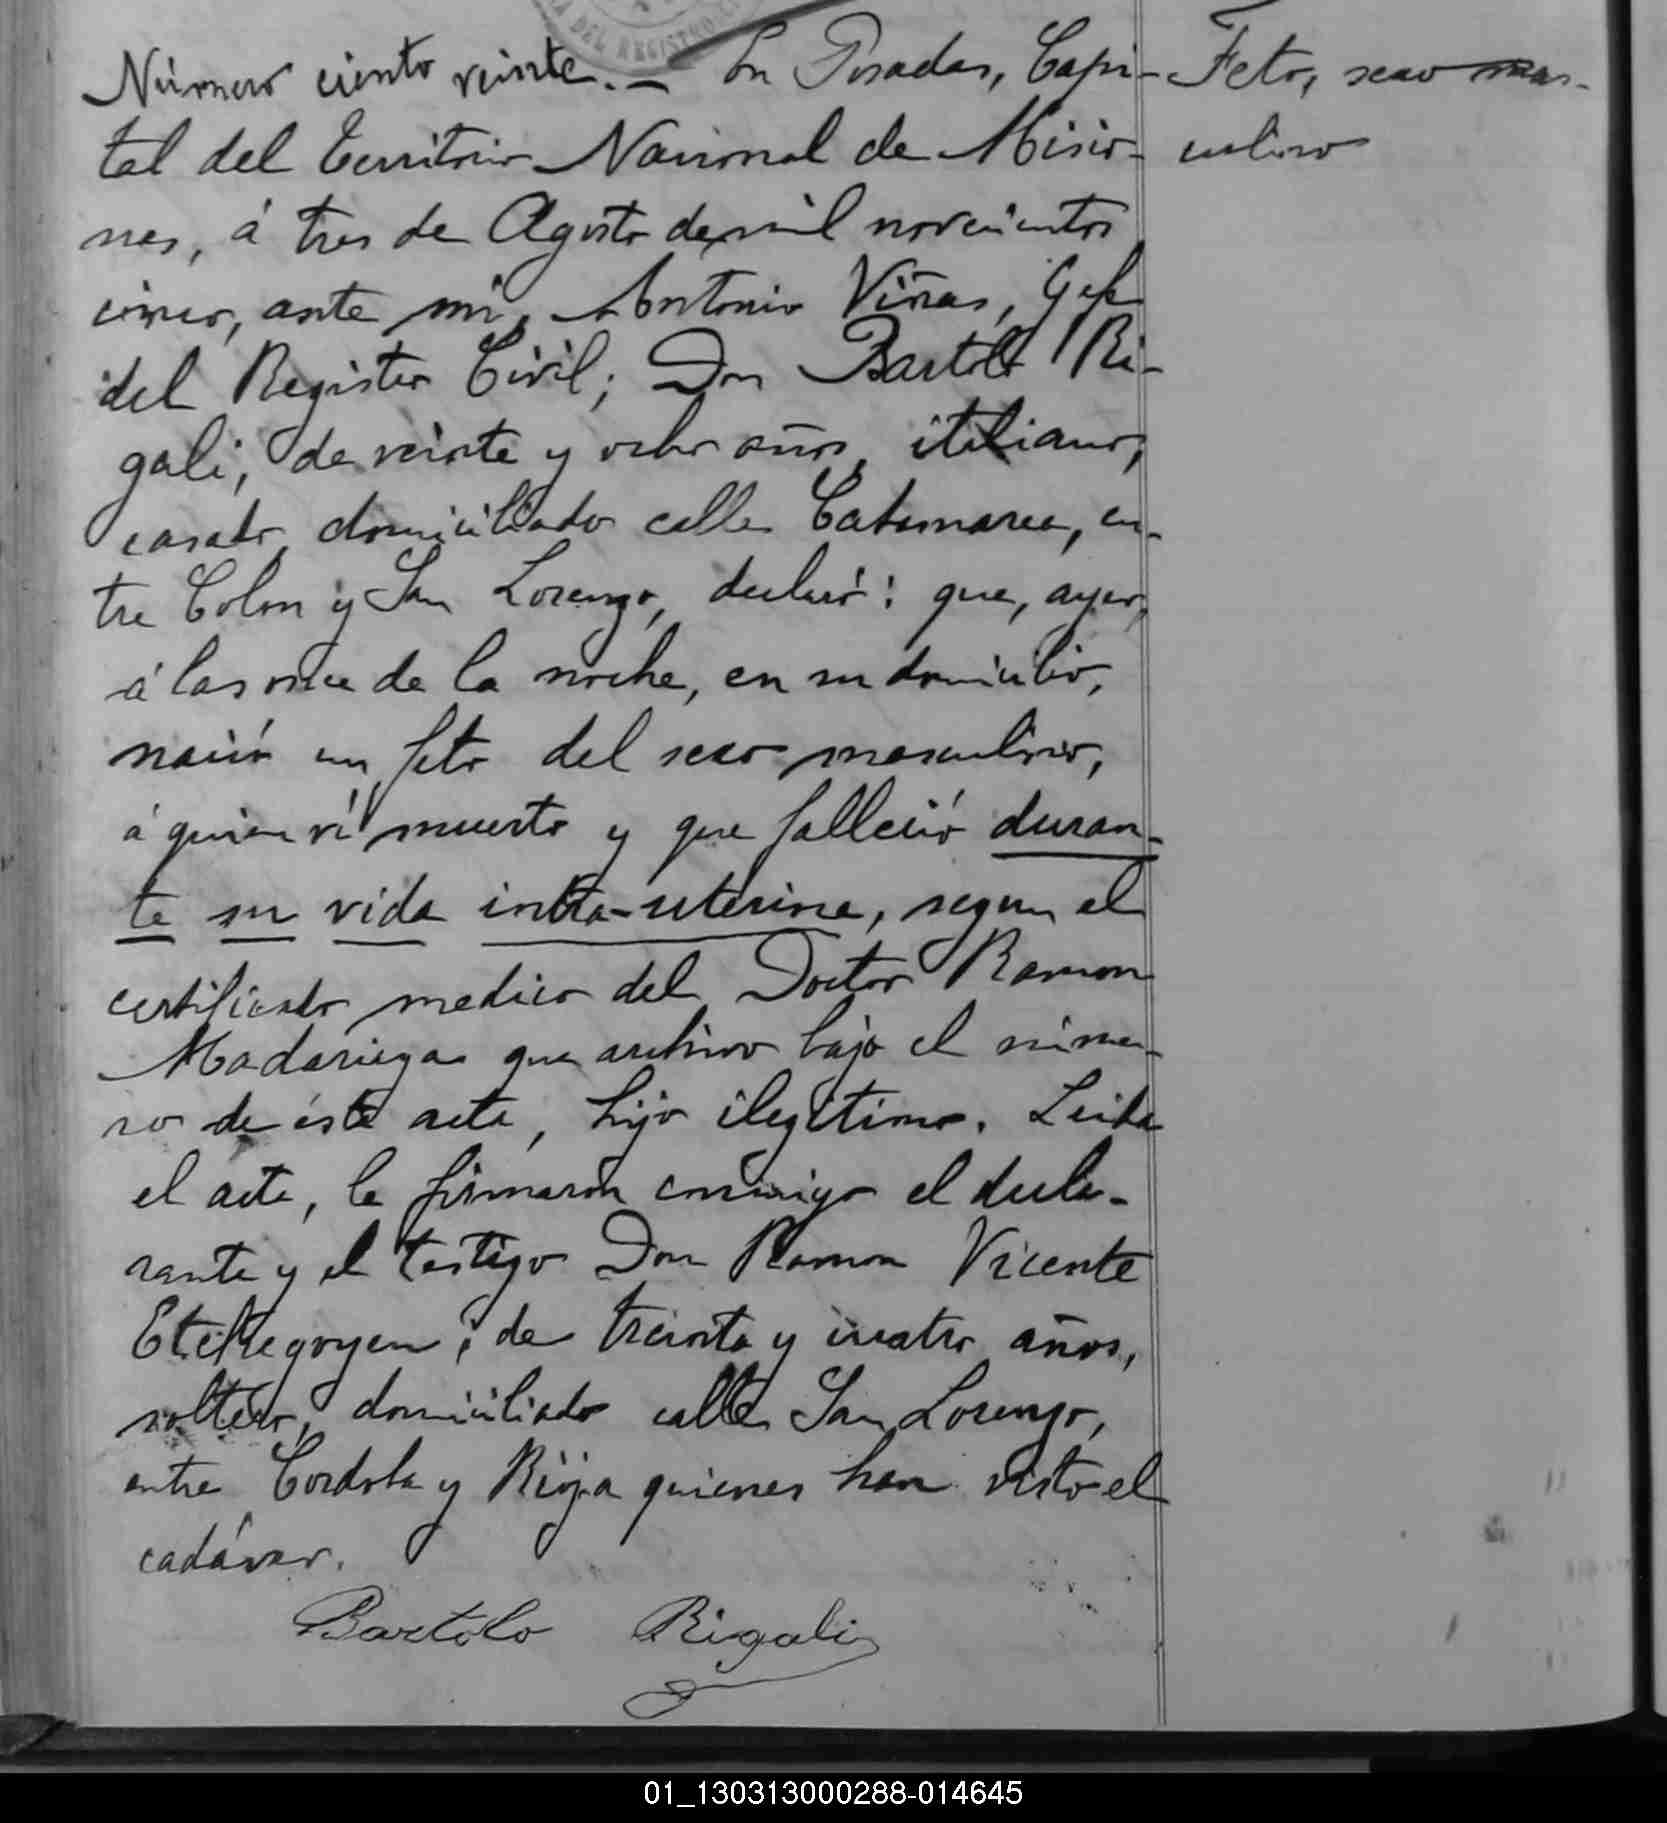 DEL REGISTRO
Número ciento veinte.— En Posadas, Capi-
tal del Territorio Nacional de Misio-
nes, á tres de Agosto de mil novecientos
cinco, ante mi, Antonio Viñas, Gefe
del Registro Civil; Don Bartolo Ri-
gali, de veinte y ocho años, italiano,
casado, domiciliado calle Catamarca, en-
tre Colon y San Lorenzo, declaró: que, ayer,
á las once de la noche, en su domicilio,
nació un feto del sexo masculino,
á quien ví muerto y que falleció duran-
te su vida intra-uterina, segun el
certificado medico del Doctor Ramon
Madariaga que archivo bajo el núme-
ro de éste acta, hijo ilegítimo. Leida
el acta, la firmaron conmigo el decla-
rante y el testigo Don Ramon Vicente
Etchegoyen, de treinta y cuatro años,
soltero, domiciliado calle San Lorenzo,
entre Cordoba y Rioja quienes han visto el
cadáver.
Bartolo Rigali
Feto, sexo mas-
culino
01_130313000288-014645